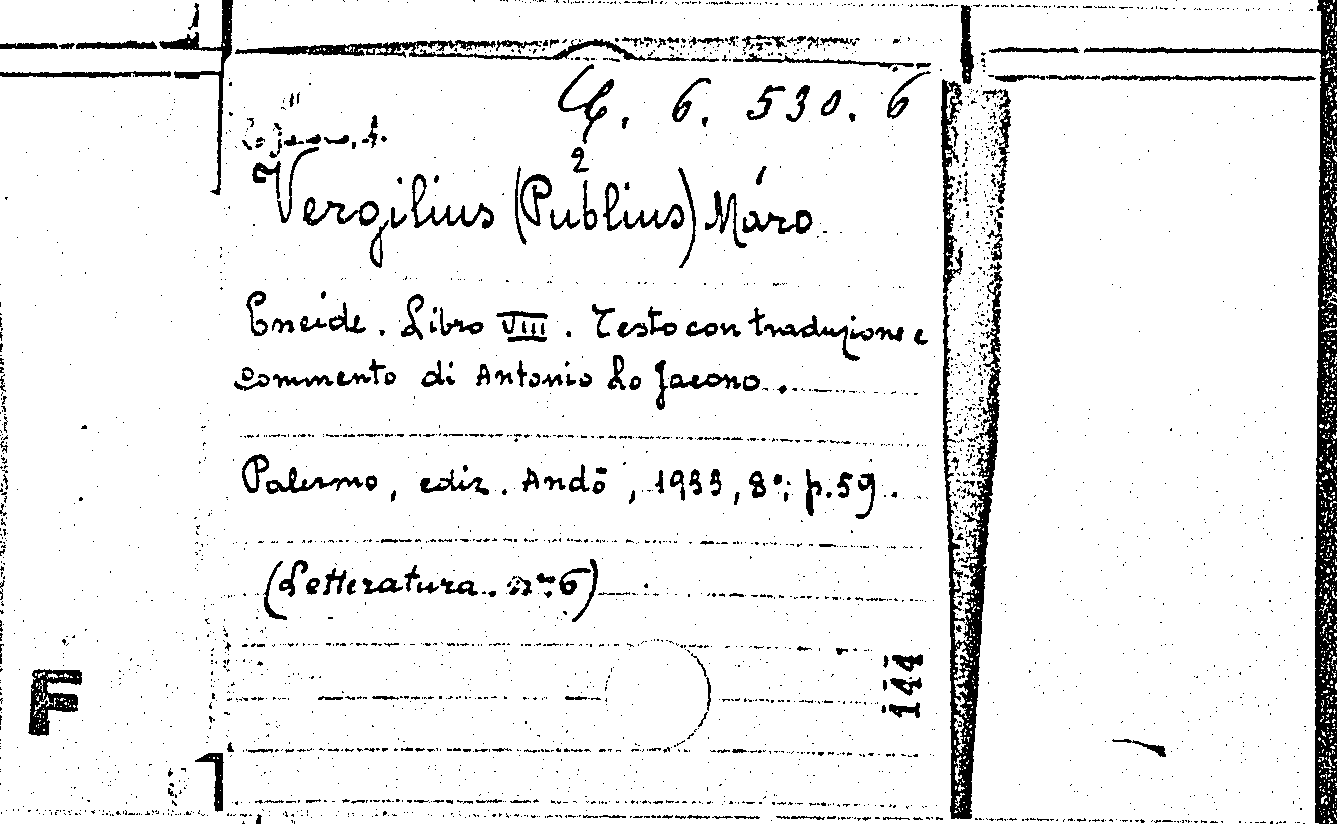 C. 6. 530. 6
Lo Jacono, A.
2
Vergilius (Publius) Maro
Eneide. Libro VIII. Testo con traduzione e
commento di Antonio Lo Jacono.
Palermo, ediz. Andò, 1933, 8°; p. 59.
(Letteratura. n° 6)
144
F